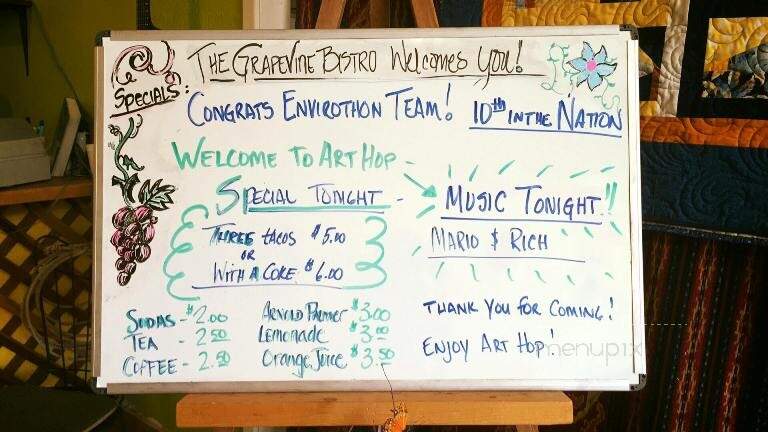 THE GRAPEVINE BISTRO Welcomes You!
SPECIALS:
CONGRATS ENVIROTHON TEAM! 10th IN THE NATION
WELCOME TO ART HOP -
SPECIAL TONIGHT -
THREE tacos $5.00
OR
WITH A COKE $6.00
MUSIC TONIGHT!!
MARIO & RICH
SODAS - $2.00
TEA - 2.50
COFFEE - 2.50
ARNOLD Palmer $3.00
Lemonade $3.00
Orange Juice $3.50
THANK YOU FOR COMING!
ENJOY ART HOP!
menupix